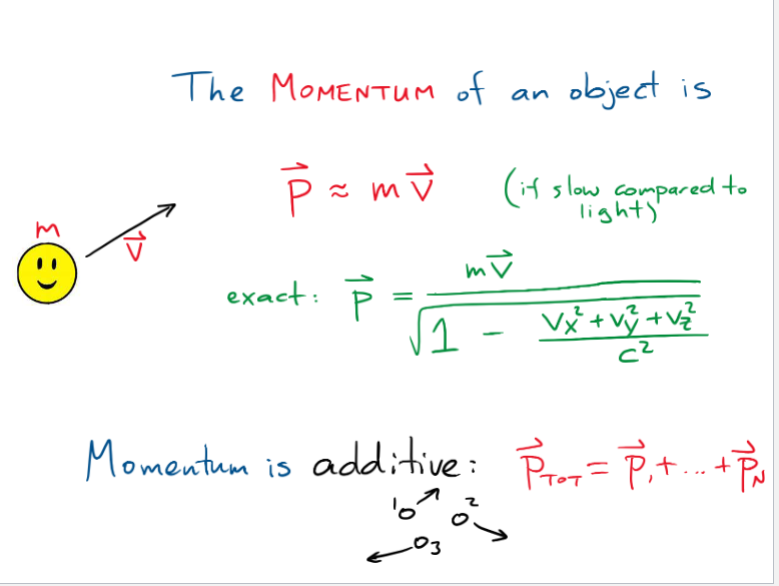 The MOMENTUM of an object is
P⃗ ≈ m V⃗ (if slow compared to
light)
m
V⃗
exact: P⃗ = mV⃗ / √(1 - (Vx² + Vy² + Vz²) / c²)
Momentum is additive: P⃗TOT = P⃗1 + ... + P⃗N
1 2
3